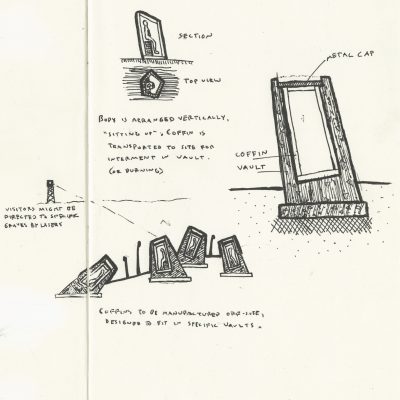 SECTION
TOP VIEW
METAL CAP
BODY IS ARRANGED VERTICALLY,
"SITTING UP", COFFIN IS
TRANSPORTED TO SITE FOR
INTERMENT IN VAULT.
(OR BURNING)
COFFIN
VAULT
VISITORS MIGHT BE
DIRECTED TO SPECIFIC
GRAVES BY LASERS
COFFINS TO BE MANUFACTURED OFF-SITE,
DESIGNED TO FIT IN SPECIFIC VAULTS.